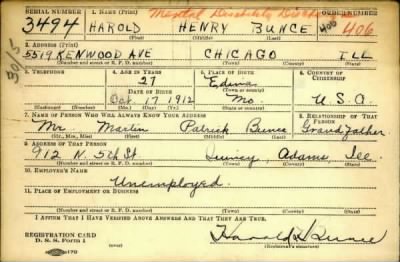 SERIAL NUMBER 1. NAME (Print) ORDER NUMBER
Mental Disability
3494 HAROLD HENRY BUNCE 406 406
(First) (Middle) (Last)
2. ADDRESS (Print)
5519 KENWOOD AVE CHICAGO ILL
(Number and street or R. F. D. number) (Town) (County) (State)
3. TELEPHONE 4. AGE IN YEARS 5. PLACE OF BIRTH 6. COUNTRY OF CITIZENSHIP
27 Edina
DATE OF BIRTH (Town or county)
Oct 17 1912 Mo. U.S.A
(Exchange) (No.) (Mo.) (Day) (Yr.) (State or country)
7. NAME OF PERSON WHO WILL ALWAYS KNOW YOUR ADDRESS 8. RELATIONSHIP OF THAT PERSON
Mr. Martin Patrick Bunce Grandfather
(Mr., Mrs., Miss) (First) (Middle) (Last)
9. ADDRESS OF THAT PERSON
912 N. 5th St Quincy, Adams Ill.
(Number and street or R. F. D. number) (Town) (County) (State)
10. EMPLOYER'S NAME
Unemployed.
11. PLACE OF EMPLOYMENT OR BUSINESS
(Number and street or R. F. D. number) (Town) (County) (State)
I AFFIRM THAT I HAVE VERIFIED ABOVE ANSWERS AND THAT THEY ARE TRUE.
REGISTRATION CARD
D. S. S. Form 1 Harold H Bunce
(Registrant's signature)